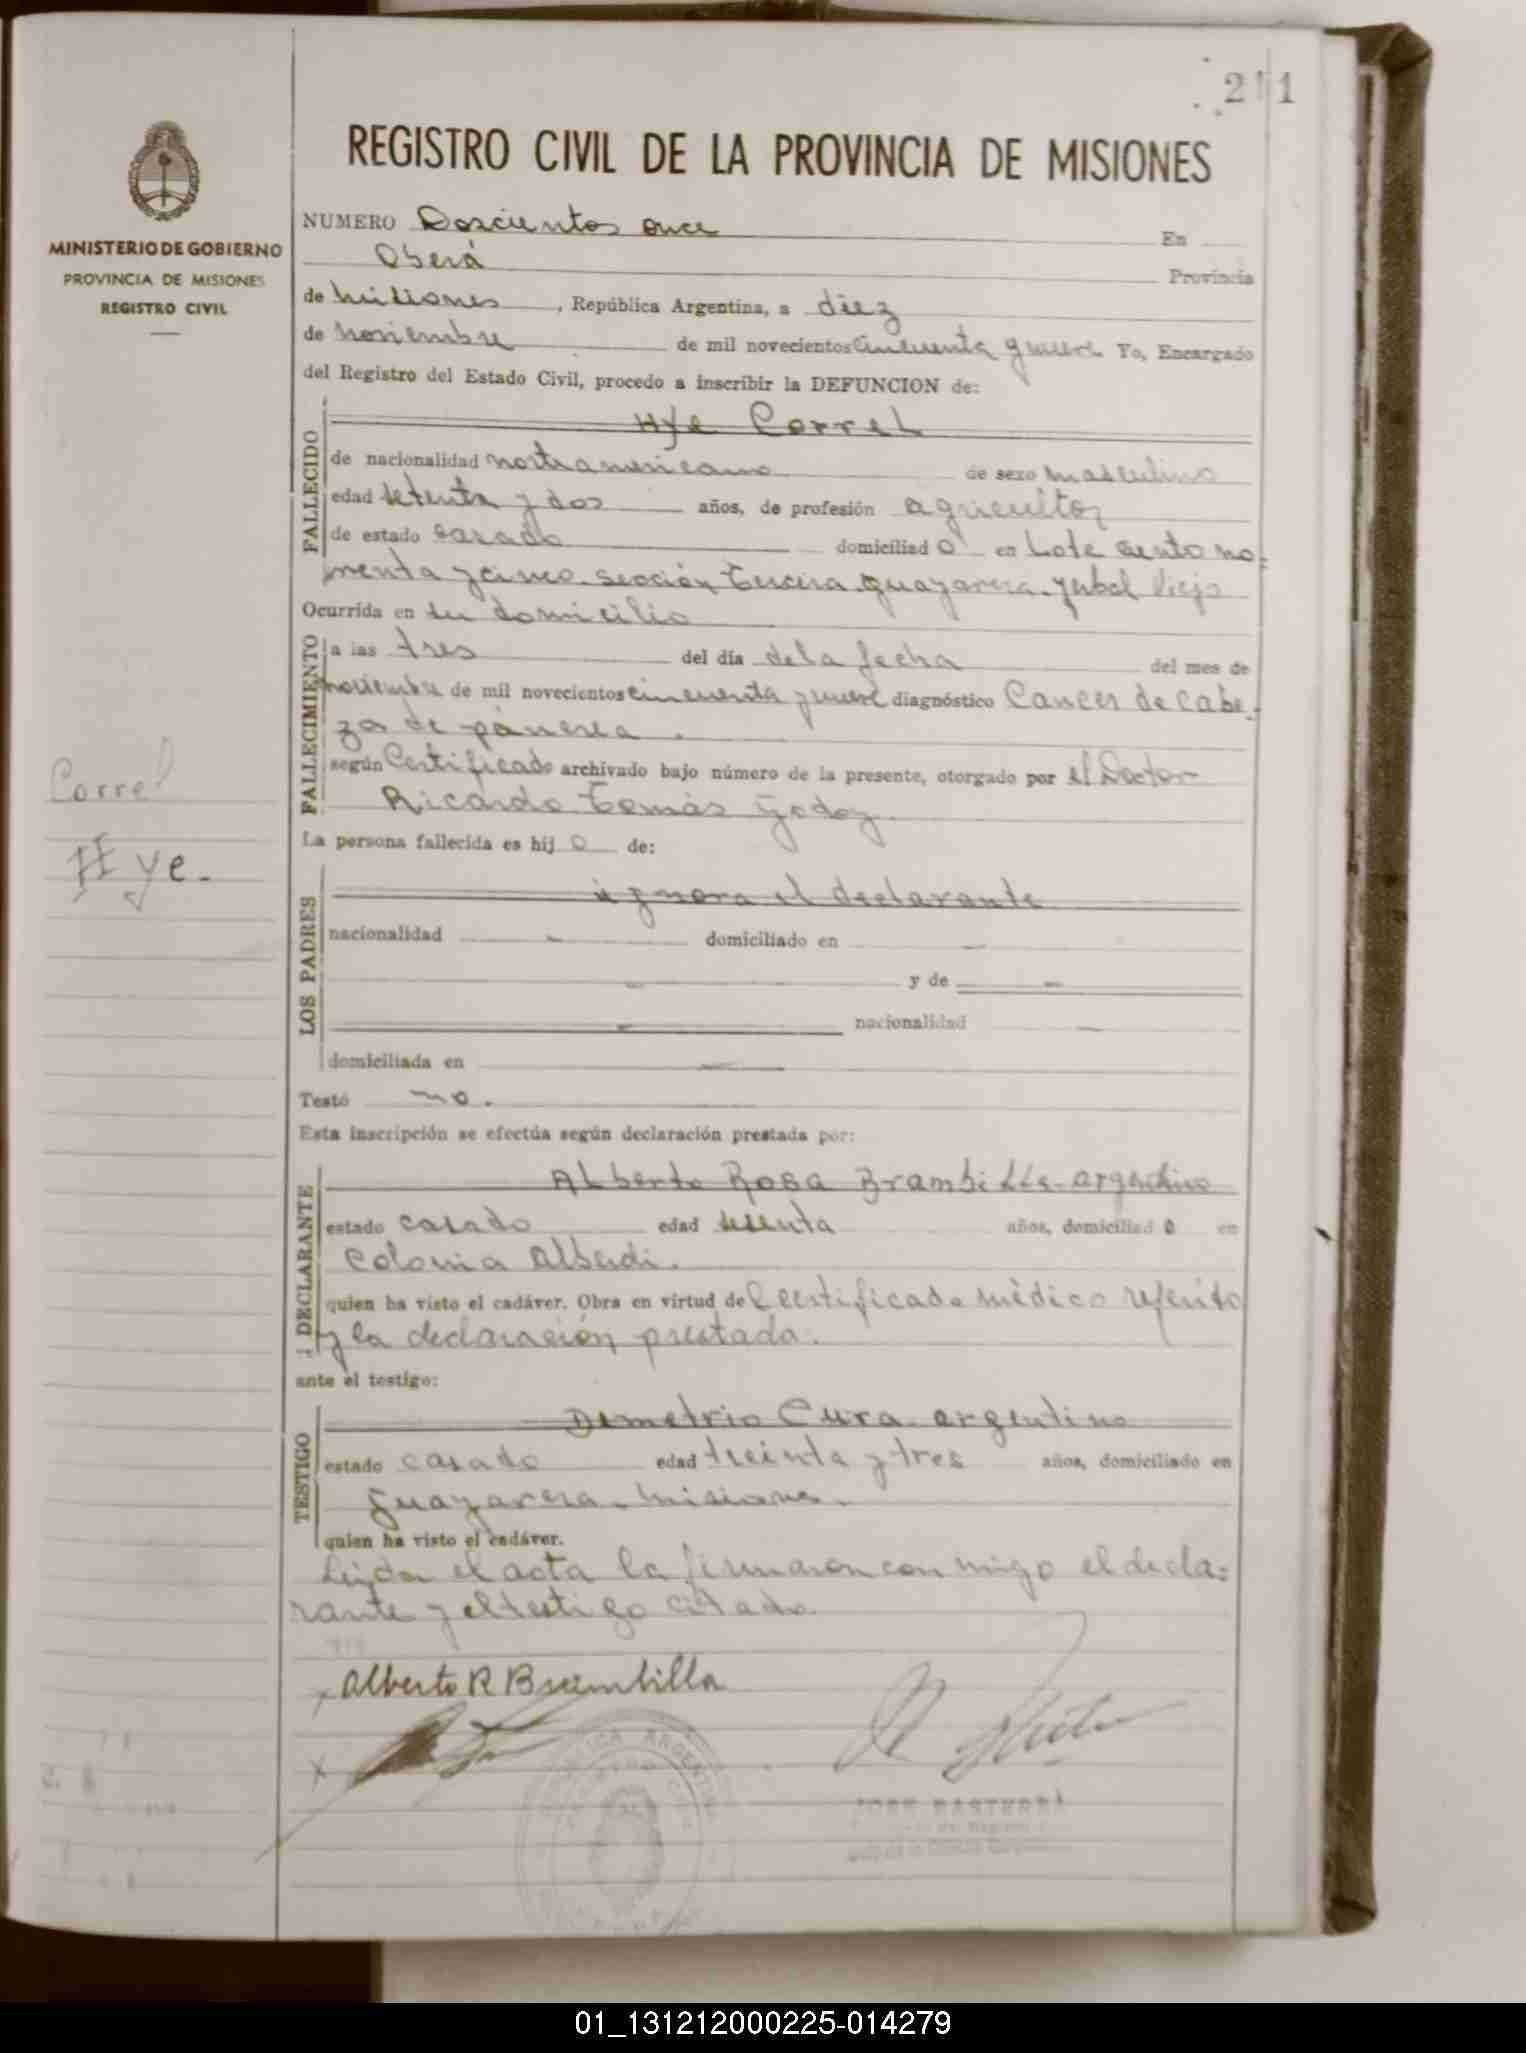 211
REGISTRO CIVIL DE LA PROVINCIA DE MISIONES
MINISTERIO DE GOBIERNO
PROVINCIA DE MISIONES
REGISTRO CIVIL
NUMERO Doscientos once En
Oberá Provincia
de Misiones, República Argentina, a diez
de noviembre de mil novecientos cincuenta y nueve Yo, Encargado
del Registro del Estado Civil, procedo a inscribir la DEFUNCION de:
FALLECIDO
Hye Correl
de nacionalidad norteamericano de sexo masculino
edad setenta y dos años, de profesión agricultor
de estado casado domiciliado en Lote ciento no=
venta y cinco. Sección tercera. Guayarera. Yabel Viejo
Ocurrida en su domicilio
FALLECIMIENTO
a las tres del día de la fecha del mes de
noviembre de mil novecientos cincuenta y nueve diagnóstico Cancer de cabe-
za de páncrea.
según Certificado archivado bajo número de la presente, otorgado por el Doctor
Ricardo Tomás Godoy.
Correl
Hye.
La persona fallecida es hijo de:
LOS PADRES
ignora el declarante
nacionalidad - domiciliado en -
- y de -
- nacionalidad -
domiciliada en -
Testó no.
Esta inscripción se efectúa según declaración prestada por:
DECLARANTE
Alberto Rosa Brambilla - argentino
estado casado edad sesenta años, domiciliado en
Colonia Alberdi.
quien ha visto el cadáver. Obra en virtud del certificado médico referido
y la declaración prestada.
ante el testigo:
TESTIGO
Demetrio Cura. argentino
estado casado edad treinta y tres años, domiciliado en
Guayarera. Misiones.
quien ha visto el cadáver.
Leída el acta la firmaron conmigo el decla=
rante y el testigo citado
Alberto R Brambilla
JOSE BASTERRA
01_131212000225-014279